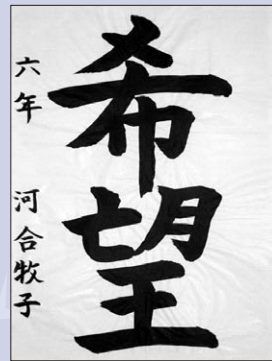 希望
六年 河合牧子